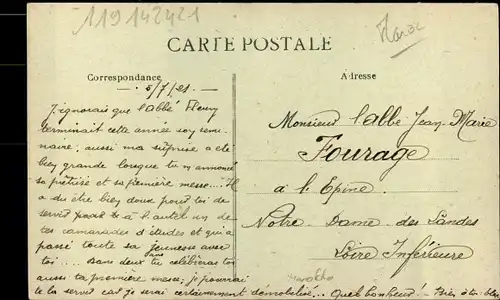 119142421
Maroc
CARTE POSTALE
Correspondance
Adresse
5/7/21
J'ignorais que l'abbé Fleury
terminait cette année son sémi-
naire, aussi ma surprise a été
bien grande lorsque tu m'annonças
sa prêtrise et sa première messe... Il
a du être bien doux pour toi de
servir pour à l'autel un de
tes camarades d'études et qui a
passé toute sa jeunesse avec
toi.... Dans deux ans célébreras toi
aussi ta première messe; je pourrai
te la servir car je serai certainement démobilisé... Quel bonheur! Bien à toi
Monsieur l'abbé Jean-Marie
Fourage
à l'Epine
Notre-Dame-des-Landes
Loire Inférieure